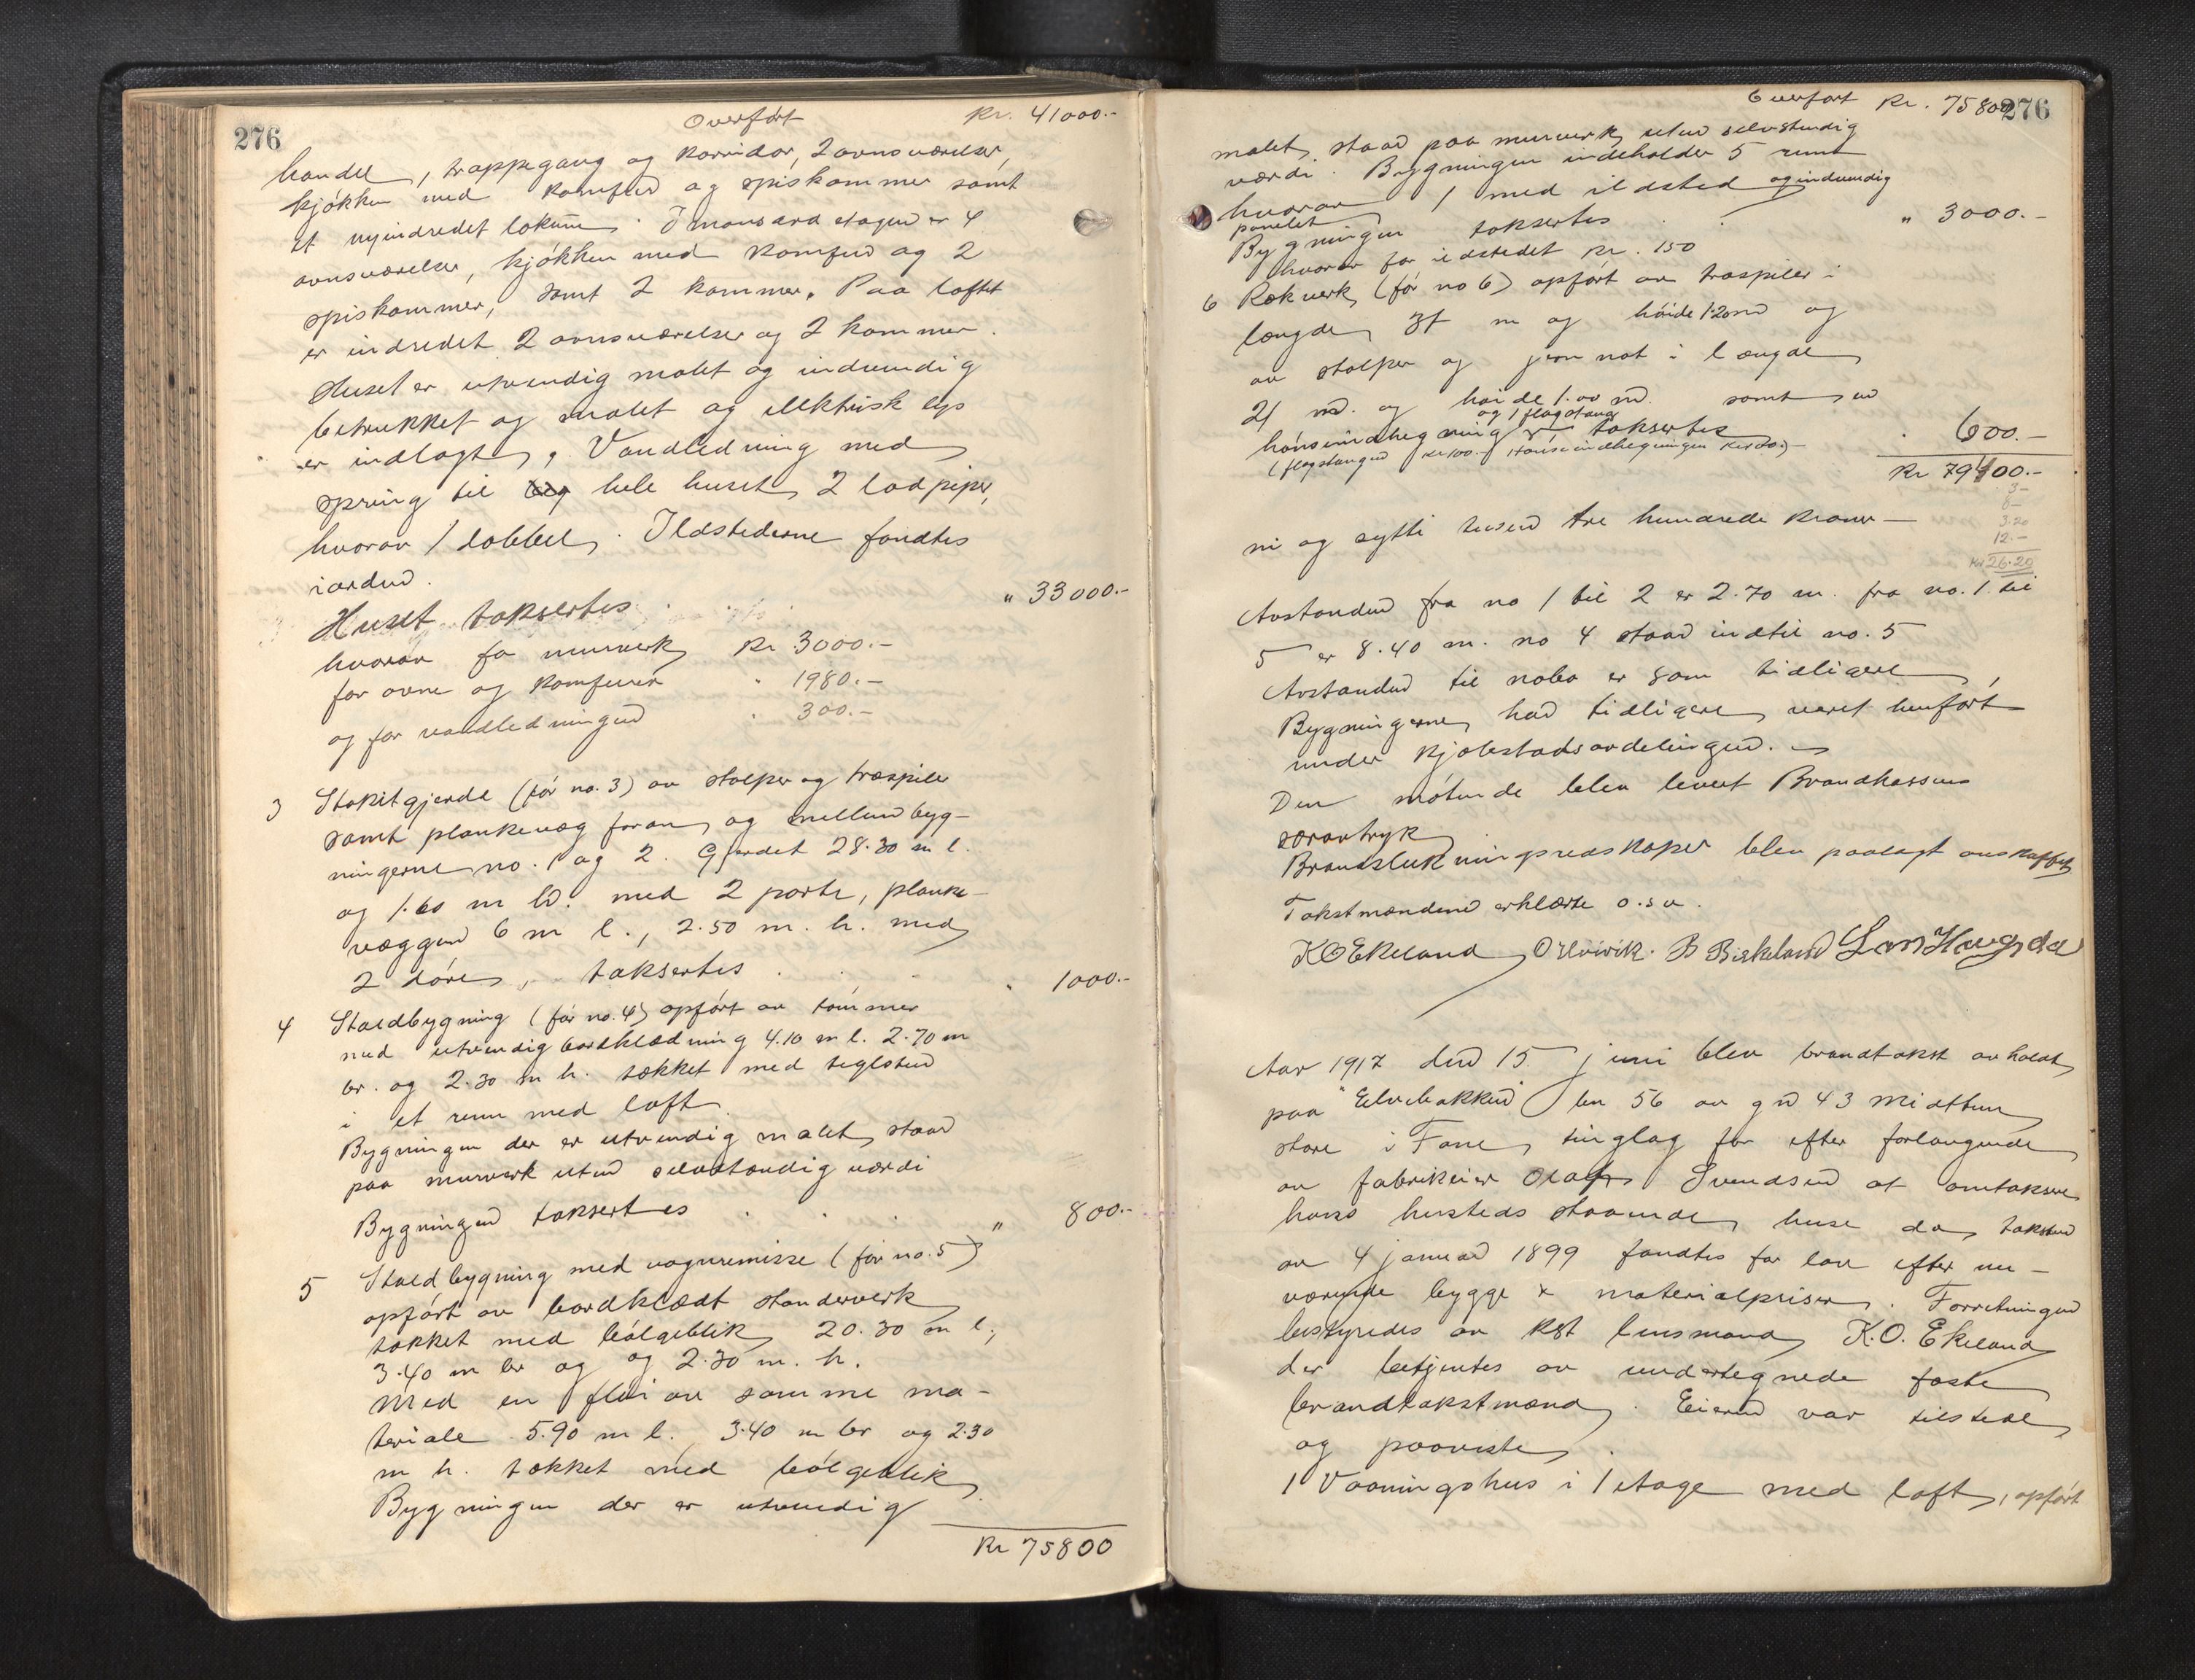 276
Overført Kr. 41000.-
handel, trappegang og korridor, 2 ovnsværelser,
kjøkken med komfur og spiskammer samt
et nyindredet lokum. I mansard etagen er 4
ovnsværelser, kjøkken med komfur og 2
spiskammer, samt 2 kammer. Paa loftet
er indredet 2 ovnsværelser og 2 kammer.
Huset er utvendig malet og indvendig
betrukket og malet og elektrisk lys
er indlagt, Vandledning med
spring til hele huset, 2 lodpiper,
hvorav 1 dobbel. Ildstederne fandtes
i orden.
Huset taksertes " 33000.-
hvorav for murverk Kr. 3000.-
for ovne og komfurer " 1980.-
og for vandledningen " 300.-
3 Stakitgjerde (før no. 3) av stolper og træspiler
samt plankevæg foran og mellem byg-
ningerne no. 1 og 2. Gjerdet 28.30 m l.
og 1.60 m h. med 2 porte, planke-
væggen 6 m l., 2.50 m. h. med
2 døre, taksertes " 1000.-
4 Staldbygning (før no. 4) opført av tømmer
med utvendig bordklædning 4.10 m l. 2.70 m
br. og 2.30 m h. tækket med teglsten
i et rum med loft.
Bygningen der er utvendig malet, staar
paa murverk uten selvstændig værdi
Bygningen taksertes " 800.-
5 Staldbygning med vognremisse (før no. 5)
opført av bordklædt standerverk
tækket med bølgeblik 20.30 m l.,
3.40 m br og og 2.30 m. h.
Med en fløi av samme ma-
teriale 5.90 m l. 3.40 m br og 2.30
m h. tækket med bølgeblik.
Bygningen der er utvendig
Kr 75800
276
Overført Kr. 75800
malet, staar paa murverk uten selvstendig
værdi. Bygningen indeholder 5 rum
hvorav 1 med ildsted og indvendig
panelet
Bygningen taksertes " 3000.-
hvorav for ildstedet kr. 150
6 Rekverk (før no 6) opført av træspiler i
længde 37 m og høide 1.20 m og
av stolper og jernnet i længde
21 m. og høide 1.00 m. samt en
hønseindhegning og 1 flagstang taksertes " 600.-
(flagstangen Kr 100.- Hønseindhegningen Kr 120.-)
Kr 79400.-
3-
8-
3.20
12.-
Kr 26.20
ni og sytti tusen fire hundrede kroner -
Avstanden fra no 1 til 2 er 2.70 m. fra no. 1 til
5 er 8.40 m. no 4 staar indtil no. 5
Avstanden til nabo er som tidligere
Bygningerne har tidligere været henført
under kjøbstadsavdelingen.
Den møtende blev levert Brandkassens
særavtryk
Brandslukningsredskaper blev paalagt anskaffet
Takstmændene erklærte o.s.v.
K O Ekeland O Hvivik. B Birkeland Lars Haugsdal
Aar 1917 den 15. juni blev brandtakst avholdt
paa "Elvebakken" bn 56 av gn 43 Midttun
store i Fane tinglag for efter forlangende
av fabrikeier Olaf Svendsen at omtaksere
hans husteds staaende huse da taksten
av 4 januar 1899 fandtes for lav efter nu-
værende bygge & materialpriser. Forretningen
bestyredes av kst lensmand K.O. Ekeland
der betjentes av undertegnede faste
brandtakstmænd. Eieren var tilstede
og paaviste.
1 Vaaningshus i 1 etage med loft, opført